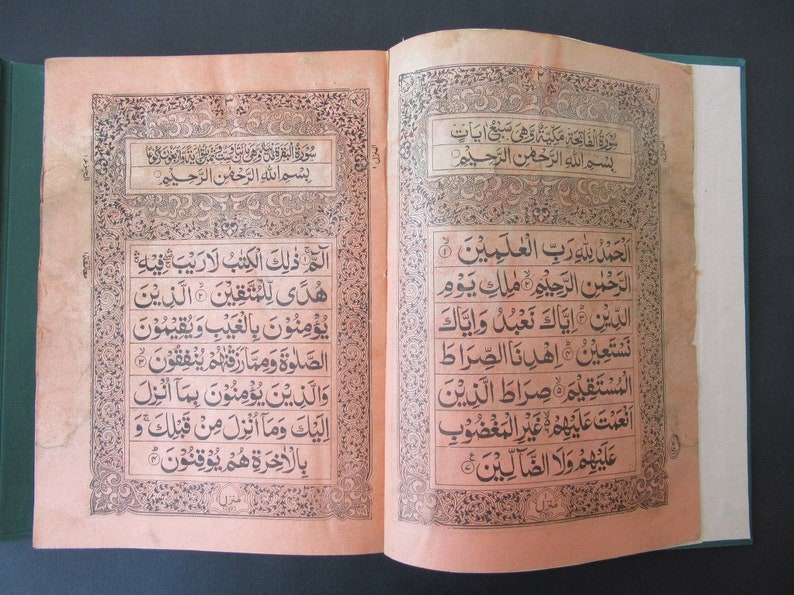 ٢
سُورَةُ الْفَاتِحَةِ مَكِّيَّةٌ وَهِيَ سَبْعُ اٰيَات
بِسْمِ اللهِ الرَّحْمٰنِ الرَّحِيْمِ
اَلْحَمْدُ لِلّٰهِ رَبِّ الْعٰلَمِيْنَ ۙ﴿١﴾
الرَّحْمٰنِ الرَّحِيْمِ ۙ﴿٢﴾ مٰلِكِ يَوْمِ
الدِّيْنِ ؕ﴿٣﴾ اِيَّاكَ نَعْبُدُ وَاِيَّاكَ
نَسْتَعِيْنُ ؕ﴿٤﴾ اِهْدِنَا الصِّرَاطَ
الْمُسْتَقِيْمَ ۙ﴿٥﴾ صِرَاطَ الَّذِيْنَ
اَنْعَمْتَ عَلَيْهِمْ ۙ﴿٦﴾ غَيْرِ الْمَغْضُوْبِ
عَلَيْهِمْ وَلَا الضَّآلِّيْنَ ﴿٧﴾ ع
منزل
٣
سُورَةُ الْبَقَرَةِ
بِسْمِ اللهِ الرَّحْمٰنِ الرَّحِيْمِ
الٓمّٓ ۚ﴿١﴾ ذٰلِكَ الْكِتٰبُ لَا رَيْبَ فِيْهِ
هُدًى لِّلْمُتَّقِيْنَ ۙ﴿٢﴾ الَّذِيْنَ
يُؤْمِنُوْنَ بِالْغَيْبِ وَيُقِيْمُوْنَ
الصَّلٰوةَ وَمِمَّا رَزَقْنٰهُمْ يُنْفِقُوْنَ ۙ﴿٣﴾
وَالَّذِيْنَ يُؤْمِنُوْنَ بِمَآ اُنْزِلَ
اِلَيْكَ وَمَآ اُنْزِلَ مِنْ قَبْلِكَ ۚ وَ
بِالْاٰخِرَةِ هُمْ يُوْقِنُوْنَ ؕ﴿٤﴾
منزل